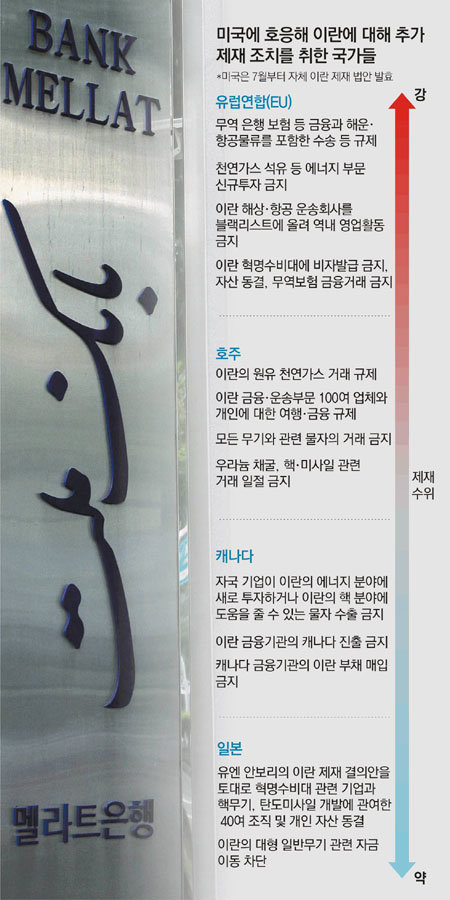 BANK
MELLAT
بانک ملت
멜라트은행
미국에 호응해 이란에 대해 추가
제재 조치를 취한 국가들
*미국은 7월부터 자체 이란 제재 법안 발효
강
유럽연합(EU)
무역 은행 보험 등 금융과 해운·
항공물류를 포함한 수송 등 규제
천연가스 석유 등 에너지 부문
신규투자 금지
이란 해상·항공 운송회사를
블랙리스트에 올려 역내 영업활동
금지
이란 혁명수비대에 비자발급 금지,
자산 동결, 무역보험 금융거래 금지
호주
이란의 원유 천연가스 거래 규제
이란 금융·운송부문 100여 업체와
개인에 대한 여행·금융 규제
모든 무기와 관련 물자의 거래 금지
우라늄 채굴, 핵·미사일 관련
거래 일절 금지
제재
수위
캐나다
자국 기업이 이란의 에너지 분야에
새로 투자하거나 이란의 핵 분야에
도움을 줄 수 있는 물자 수출 금지
이란 금융기관의 캐나다 진출 금지
캐나다 금융기관의 이란 부채 매입
금지
일본
유엔 안보리의 이란 제재 결의안을
토대로 혁명수비대 관련 기업과
핵무기, 탄도미사일 개발에 관여한
40여 조직 및 개인 자산 동결
이란의 대형 일반무기 관련 자금
이동 차단
약